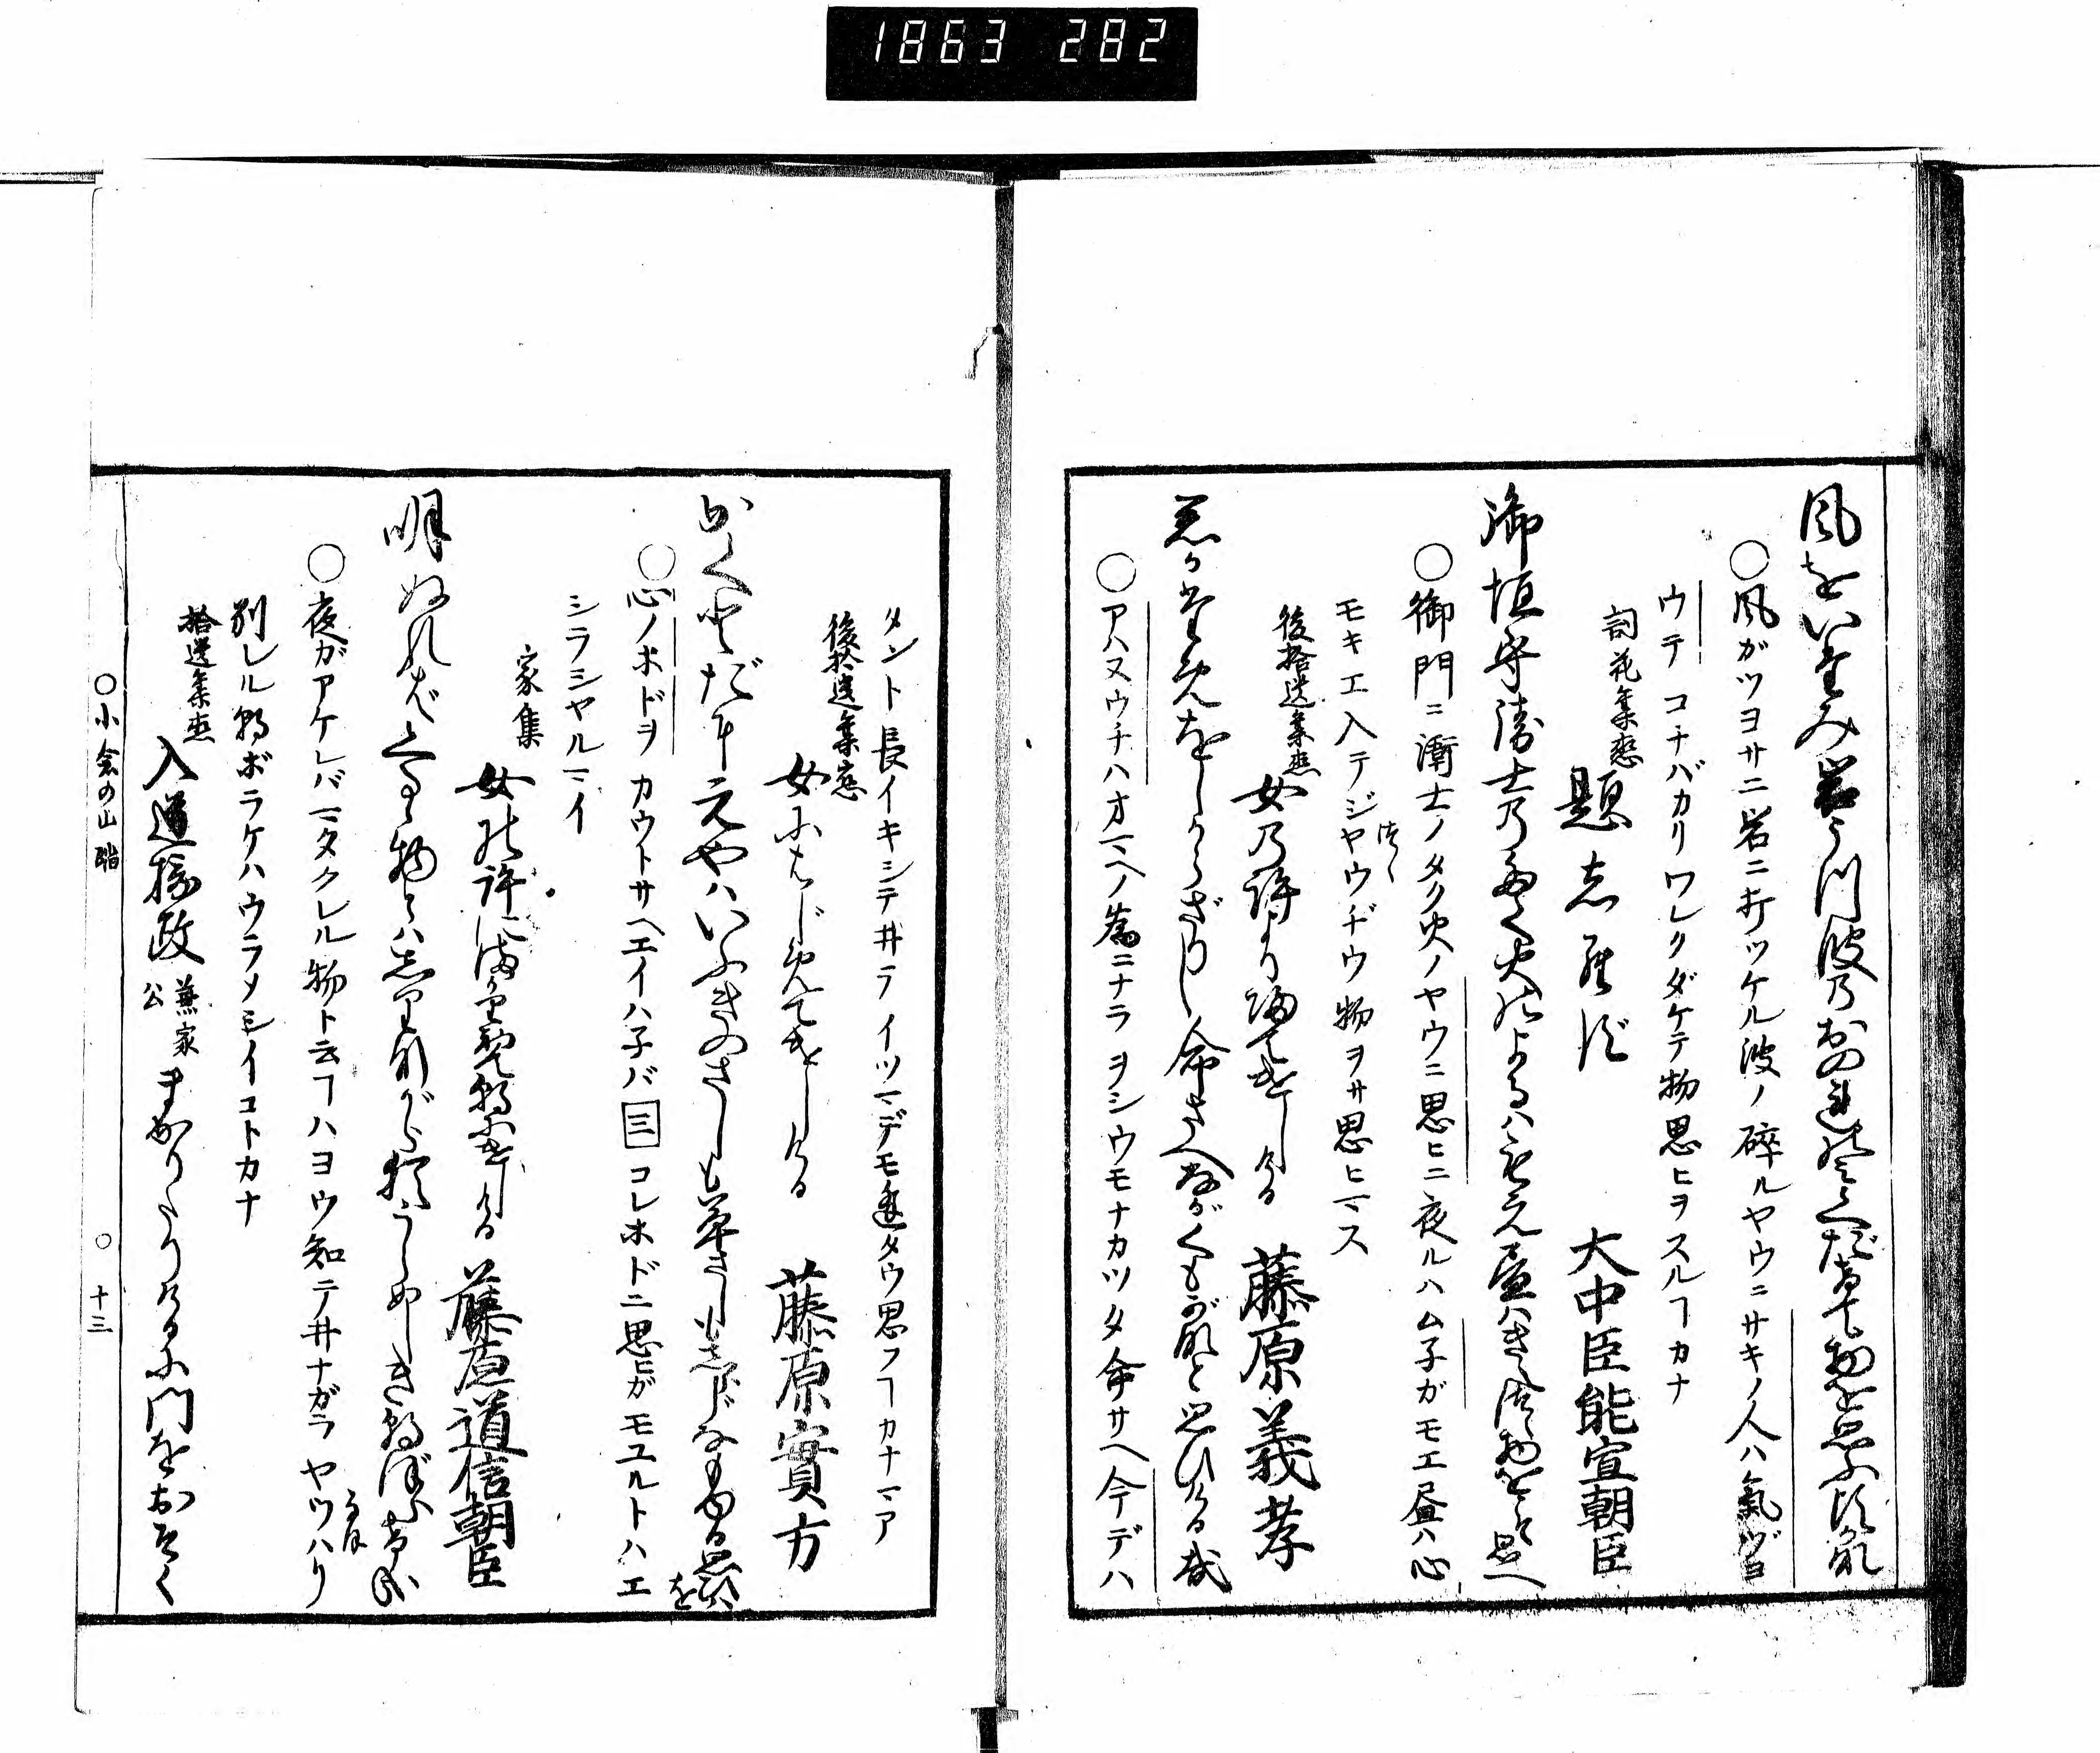 1863 282
風をいたみ岩うつ波のおのれのみくだけて物を思ふ頃哉
○風ガツヨサニ岩ニ打ツケル波ノ碎ルヤウニサキノ人ハ氣ヅヨ
ウテコチバカリワレクダケテ物思ヒヲスルヿカナ
詞花集恋 題志らず 大中臣能宣朝臣
御垣守衛士乃たく火のよるハもえ昼ハきえつゝ物をこそ思へ
○御門ニ衛士ノタク火ノヤウニ思ヒニ夜ルハムネガモエ昼ハ心
モキエ入テジヤウヂウ物ヲサ思ヒマス
後拾遺集恋 女乃許より帰てつかはしける 藤原義孝
君がためをしからざりし命さへながくもがなと思ひける哉
○アハヌウチハオマヘノ為ニナラヲシウモナカツタ命サヘ今デハ
タント長イキシテ井ライツマデモ逢タウ思フヿカナマア
後拾遺集恋 女にはじめてつかはしける 藤原實方
かくとだにえやハいふきのさしも草さしもしらじなもゆる思ひを
○心ノホドヲカウトサヘエイハネバ三コレホドニ思ヒガモユルトハエ
シラシヤルマイ
家集 女の許にまかりて朝につかはしける 藤原道信朝臣
明ぬれバくるゝ物とハ志りながら猶うらめしき朝ぼらけ哉
○夜ガアケレバマタクレル物ト云ヿハヨウ知テ井ナガラヤツハリ
別レル朝ボラケハウラメシイコトカナ
拾遺集恋 入道摂政 兼家公 まかりたりけるに門をおそく
○小倉の山 ○ 十三